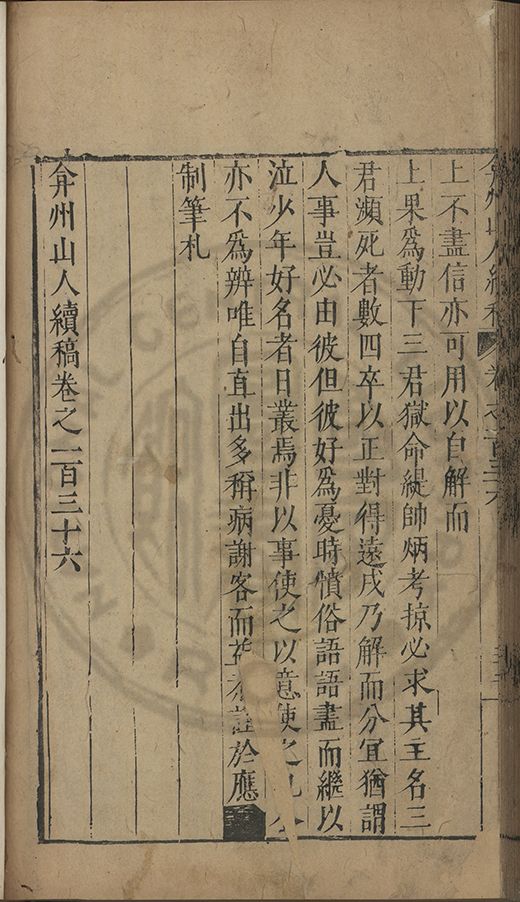 弇州山人續稿 卷之一百三十六
上不盡信亦可用以自解而
上果爲動下三君獄命緹帥炳考掠必求其主名三
君瀕死者數四卒以正對得遠戍乃解而分宜猶謂
人事豈必由彼但彼好爲憂時憤俗語語盡而繼以
泣少年好名者日叢焉非以事使之以意使之
亦不爲辨唯自直出多稱病謝客而於應
制筆札
弇州山人續稿卷之一百三十六